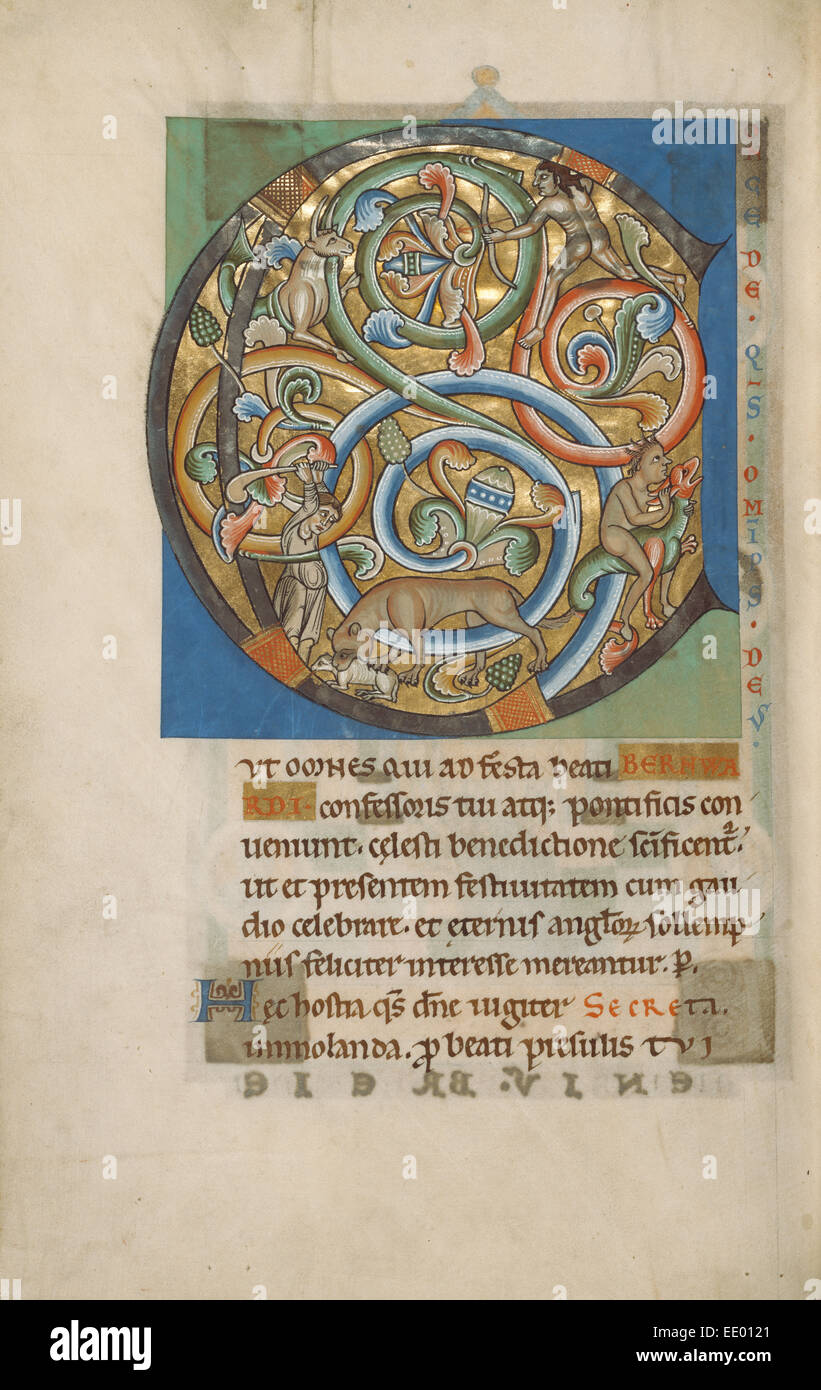 CEDE · Q · S · OMIPS · DEVS ·
VT OMNES QUI AD festa beati BERNWA
RDI · confessoris tui atq; pontificis con
ueniunt · cęlesti benedictione scificent᷑ ·
ut et presentem festiuitatem cum gau
dio celebrare · et ęternis anglorꝝ sollemp
niis feliciter interesse mereantur · p ·
Hęc hostia qs dne iugiter SECRETA ·
immolanda · p beati presulis TVI
alamy stock photo
EE0121
www.alamy.com